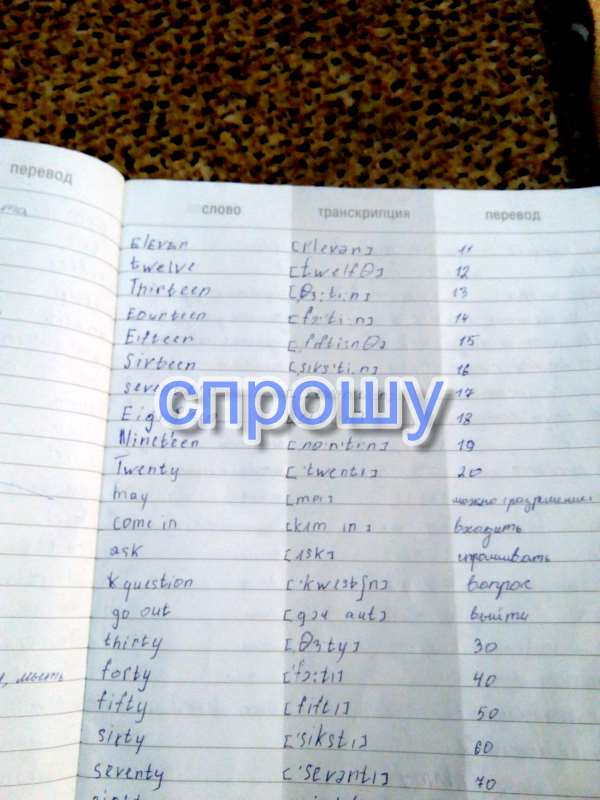 перевод
слово транскрипция перевод
Elevan [ɪ'levən] 11
twelve [twelfθ] 12
Thirteen [,θɜ:'ti:n] 13
Fourteen [,fɔ:'ti:n] 14
Fifteen 15
Sixteen [,sɪks'ti:n] 16
спрошу
17
18
Nineteen 19
Twenty ['twentɪ] 20
may [meɪ]
come in [kʌm in] входить
ask спрашивать
question ['kwestʃn] вопрос
go out [gəʊ aut] выйти
thirty [,θɜ:ty] 30
forty ['fɔ:tɪ] 40
мыть
fifty [fiftɪ] 50
sixty ['sikstɪ] 60
seventy ['sevəntɪ] 70